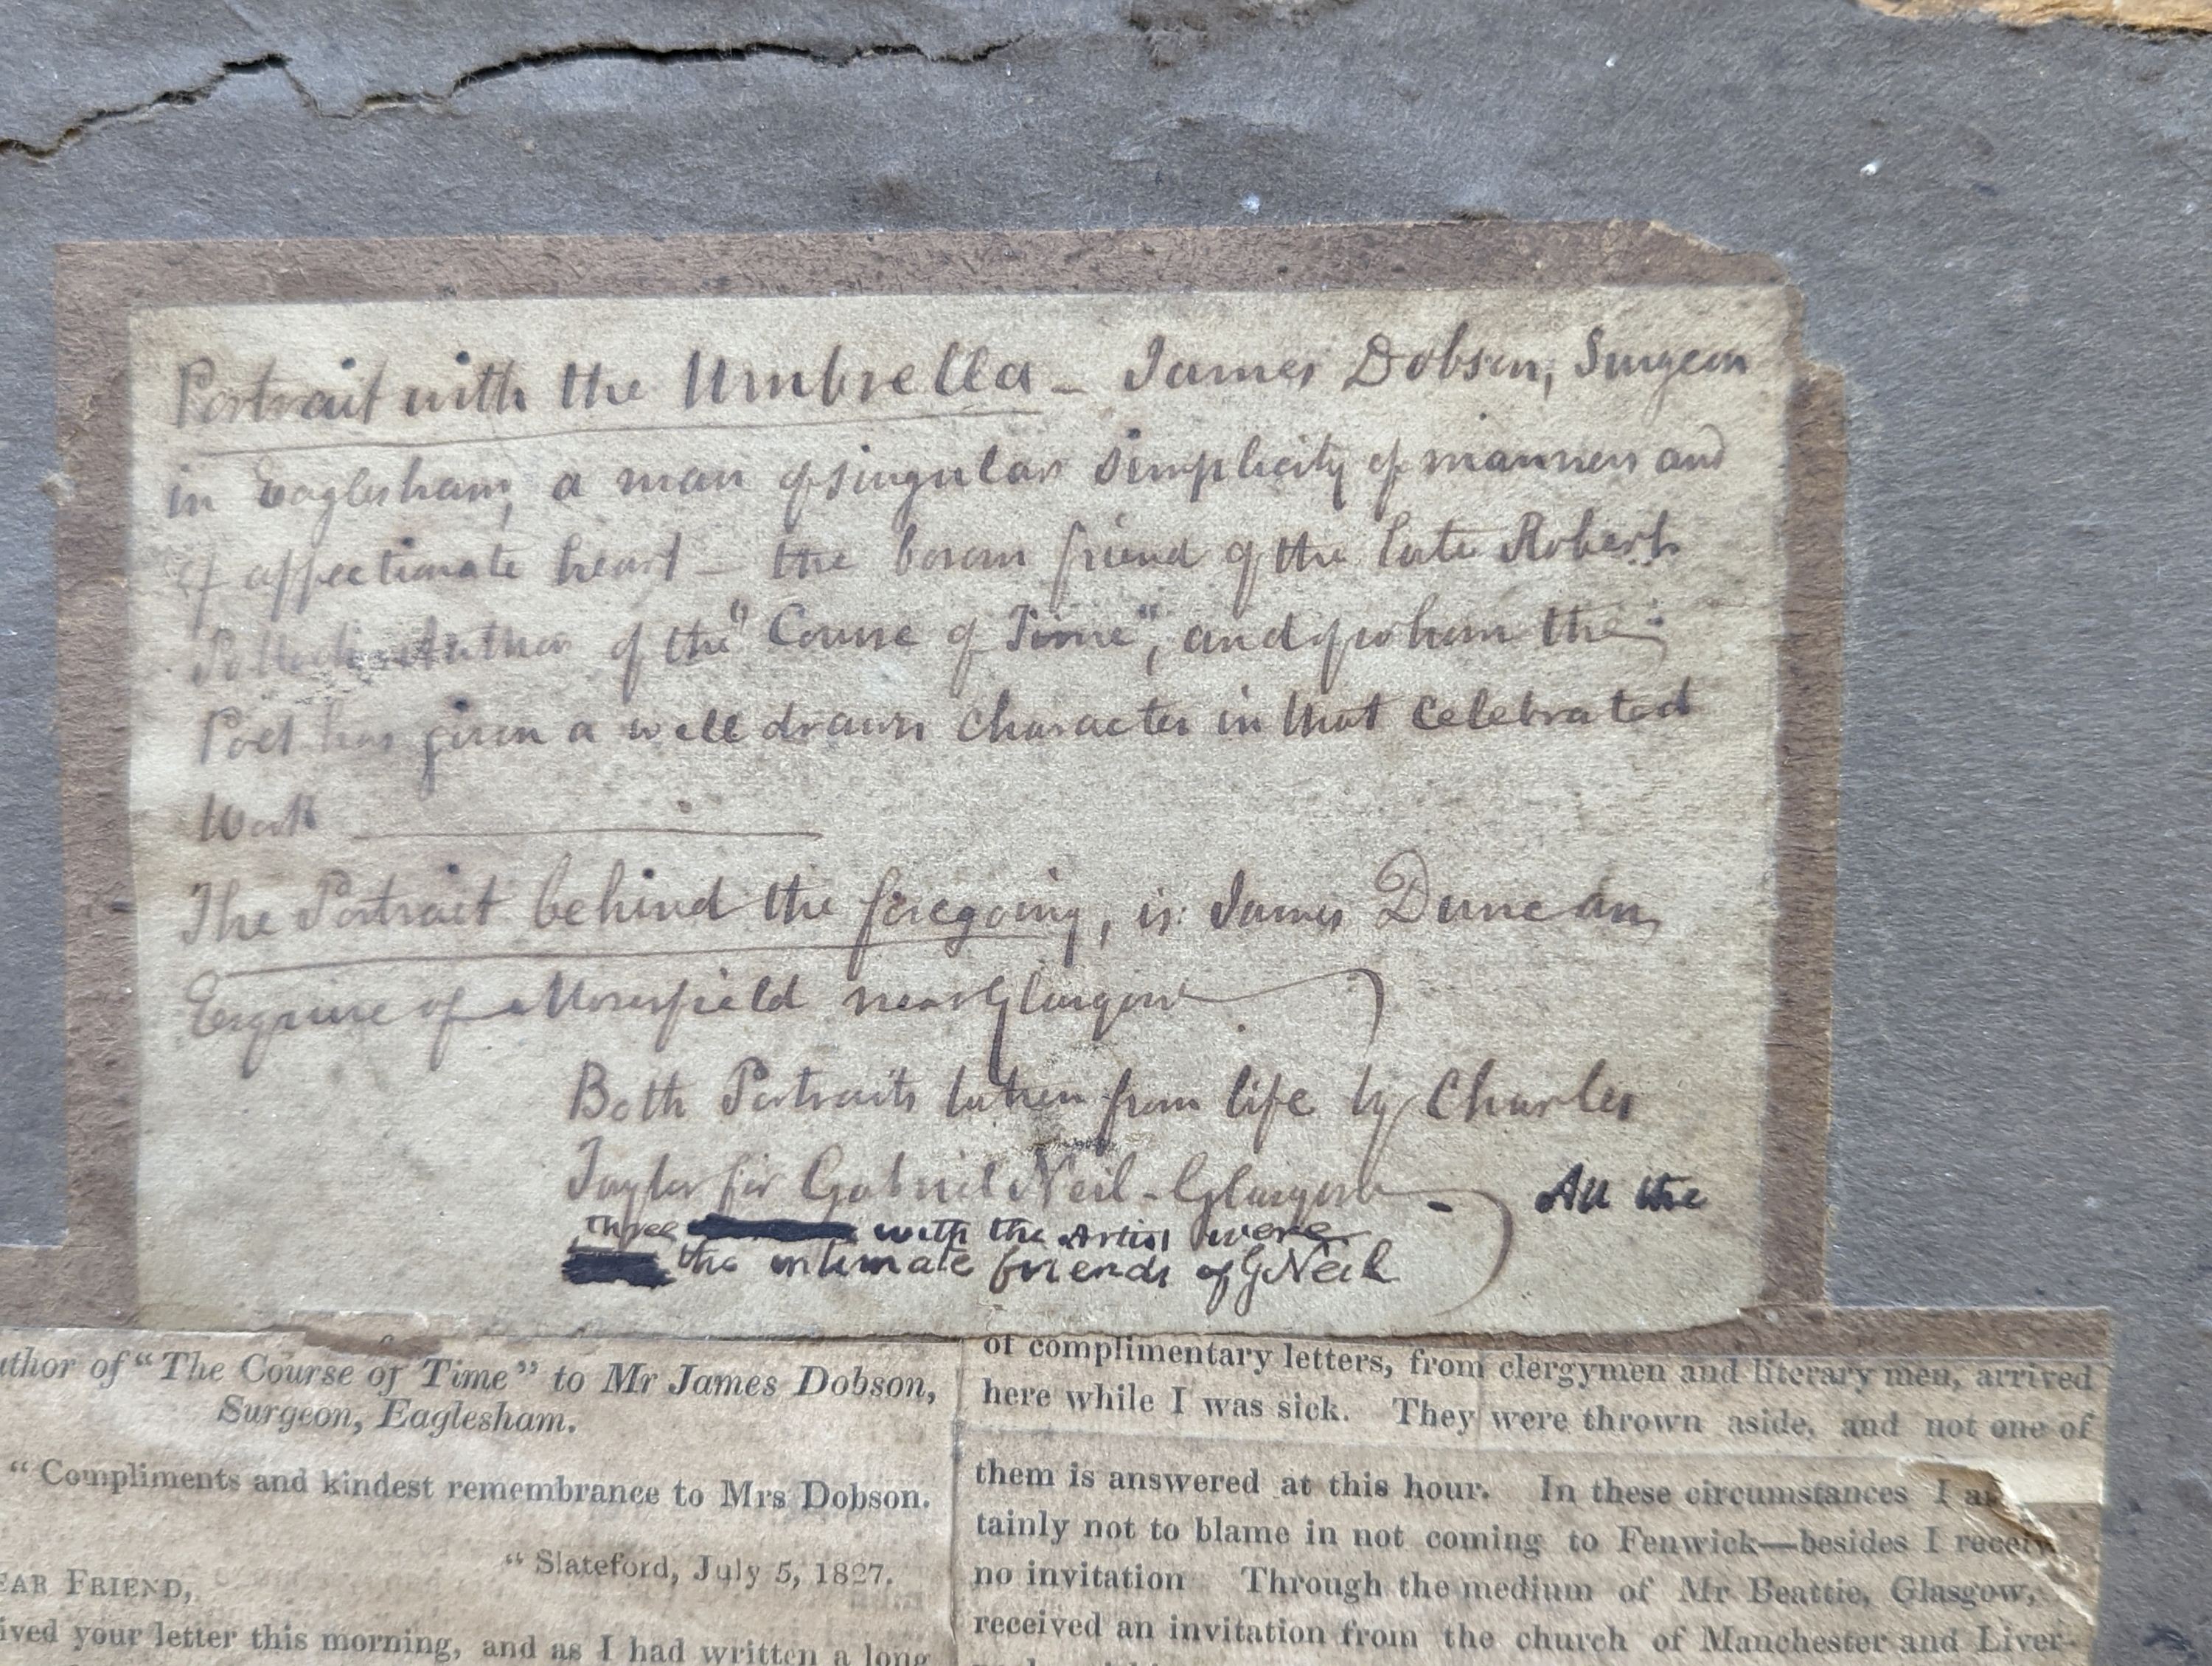 Portrait with the Umbrella - James Dobson, Surgeon
in Eaglesham, a man of singular simplicity of manners and
of affectionate heart - the bosom friend of the late Robert
Pollock Author of the "Course of Time", and of whom the
Poet has given a well drawn character in that celebrated
Work
The Portrait behind the foregoing, is: James Duncan,
Esquire of Mosesfield near Glasgow
Both Portraits taken from life by Charles
Taylor for Gabriel Neil - Glasgow - All the
three with the Artist were
the intimate friends of G Neil
uthor of "The Course of Time" to Mr James Dobson,
Surgeon, Eaglesham.
"Compliments and kindest remembrance to Mrs Dobson.
"Slateford, July 5, 1827.
EAR FRIEND,
ived your letter this morning, and as I had written a long
of complimentary letters, from clergymen and literary men, arrived
here while I was sick. They were thrown aside, and not one of
them is answered at this hour. In these circumstances I a
tainly not to blame in not coming to Fenwick—besides I receiv
no invitation Through the medium of Mr Beattie, Glasgow,
received an invitation from the church of Manchester and Liver-